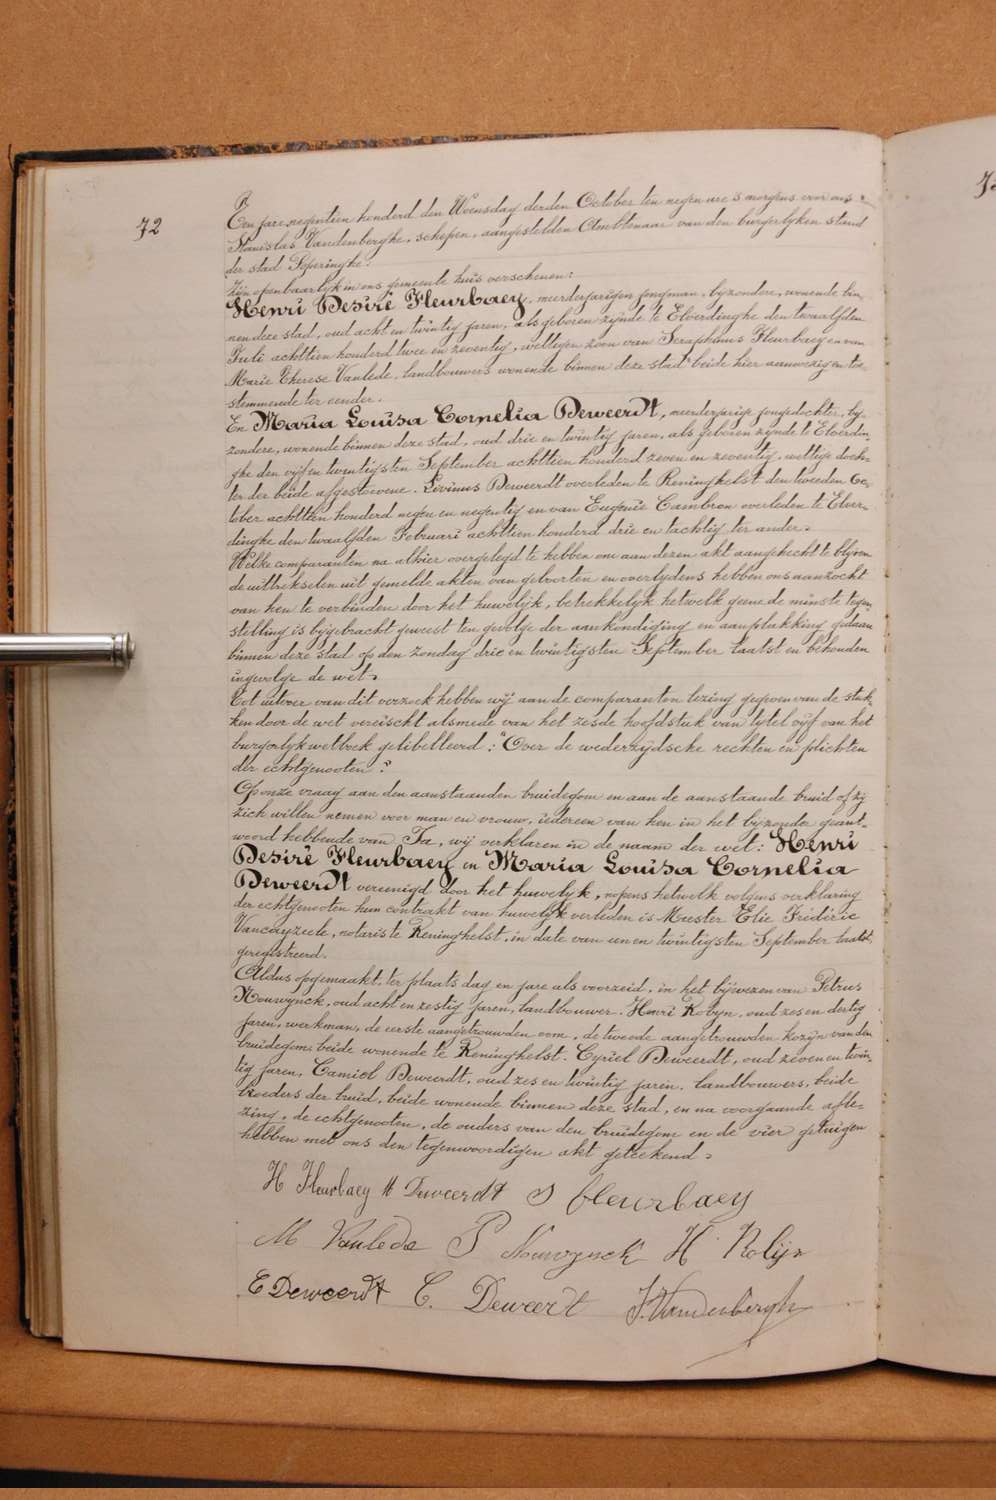 72
Ten jare negentien honderd den Woensdag derden October ten negen ure 's morgens voor ons
Stanislas Vandenberghe, schepen, aangestelden Ambtenaar van den burgerlyken stand
der stad Poperinghe.
Zijn openbaarlyk in ons gemeente huis verschenen:
Henri Desiré Fleurbaey, meerderjarigen jongman, byzondere, wonende bin-
nen deze stad, oud acht en twintig jaren, als geboren zynde te Elverdinghe den twaalfden
Juli achttien honderd twee en zeventig, wettigen zoon van Seraphinus Fleurbaey en van
Marie Therese Vanlede, landbouwers wonende binnen deze stad beide hier aanwezig en toe-
stemmende ter eender.
En Maria Louisa Cornelia Deweerdt, meerderjarige jongedochter, by-
zondere, wonende binnen deze stad, oud drie en twintig jaren, als geboren zynde te Elverdin-
ghe den vijf en twintigsten September achttien honderd zeven en zeventig, wettige doch-
ter der beide afgestorvene. Livinus Deweerdt overleden te Reninghelst den tweeden Oc-
tober achttien honderd negen en negentig en van Eugenie Cambron overleden te Elver-
dinghe den twaalfden Februari achttien honderd drie en tachtig ter ander.
Welke comparanten na alhier overgelegd te hebben om aan dezen akt aangehecht te blyven
de uittrekselen uit gemelde akten van geboorten en overlydens hebben ons aanzocht
van hen te verbinden door het huwelijk, betrekkelyk hetwelk geene de minste tegen-
stelling is bygebracht geweest ten gevolge der aankondiging en aanplakking gedaan
binnen deze stad op den Zondag drie en twintigsten September laatst en behouden
ingevolge de wet.
Tot uitvoer van dit verzoek hebben wij aan de comparanten lezing gegeven van de stuk-
ken door de wet vereischt alsmede van het zesde hoofdstuk van tytel vyf van het
burgerlyk wetboek getibelleerd: "Over de wederzydsche rechten en plichten
der echtgenooten".
Op onze vraag aan den aanstaanden bruidegom en aan de aanstaande bruid of zy
zich willen nemen voor man en vrouw, iedereen van hen in het byzonder geant-
woord hebbende van Ja, wij verklaren in de naam der wet: Henri
Desiré Fleurbaey en Maria Louisa Cornelia
Deweerdt vereenigd door het huwelyk, nopens hetwelk volgens verklaring
der echtgenooten hun contrakt van huwelyk verleden is Meester Elie Frideric
Vancayzeele, notaris te Reninghelst, in date van een en twintigsten September laatst,
geregistreerd.
Aldus opgemaakt, ter plaats dag en jare als voorzeid, in het bijwezen van Petrus
Nouwynck, oud acht en zestig jaren, landbouwer. Henri Robyn, oud zes en dertig
jaren, werkman, de eerste aangetrouwden oom, de tweede aangetrouwden kozyn van den
bruidegom, beide wonende te Reninghelst. Cyriel Deweerdt, oud zeven en twin-
tig jaren, Camiel Deweerdt, oud zes en twintig jaren, landbouwers, beide
broeders der bruid, beide wonende binnen deze stad, en na voorgaande afle-
zing, de echtgenooten, de ouders van den bruidegom en de vier getuigen
hebben met ons den tegenwoordigen akt geteekend.
H Fleurbaey M Deweerdt S fleurbaey
M Vanlede P Nouwynck H Robijn
C Deweerdt C. Deweerdt S. Vandenberghe